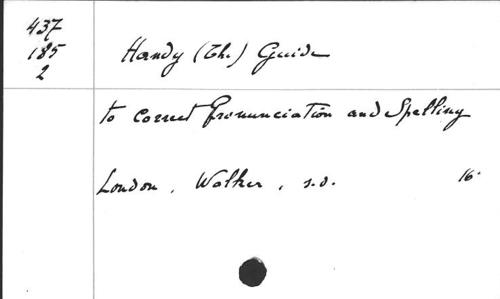 437
185
2
Handy (The) Guide
to correct Pronunciation and Spelling
London, Walker, s.d. 16°